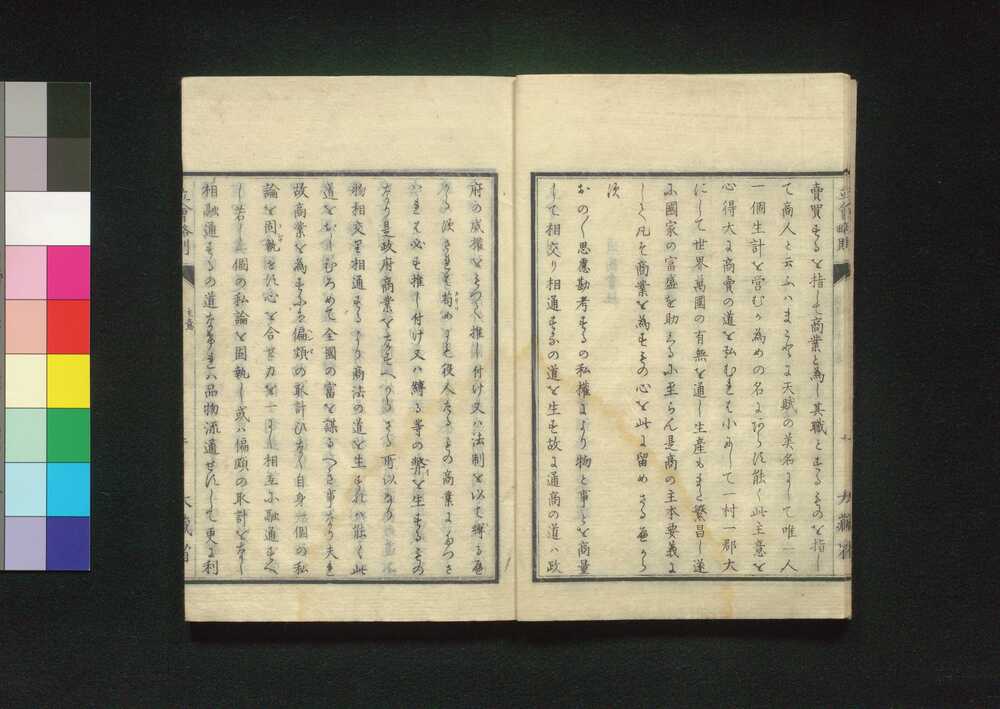 賣買するを指して商業と為し其職とするものを指し
て商人と云ふハまことに天賦の美名にして唯一人
一個生計を営むか為めの名にあらす能く此主意を
心得大に商賣の道を弘むれは小にして一村一郡大
にして世界萬國の有無を通し生産もまた繁昌し遂
に國家の富盛を助くるに至らん是商の主本要義に
して凡そ商業を為すもの心を此に留めさる可から
す
おの〱思慮勘考するの私權により物と事とを商量
して相交り相通するの道を生す故に通商の道ハ政
府の威權を以て推し付け又ハ法制を以て縛る可
からすされとも苟めにも役人たるもの商業になつさ
ハれは必す推し付け又ハ縛る等の弊を生するもの
なり是政府商業をなすへからさる所以なり
物相交り相通するより商法の道を生す我ハ能く此
道をおしひろめて全國の富を謀るへき事なり夫れ
故商業を為すには偏頗の取計ひなく自身一個の私
論を固執せす心を合せ力を一にし相互に融通すへ
し若し一個の私論を固執し或ハ偏頗の取計をなし
相融通するの道なけれハ品物流通せすして更に利
立會略則
大藏省